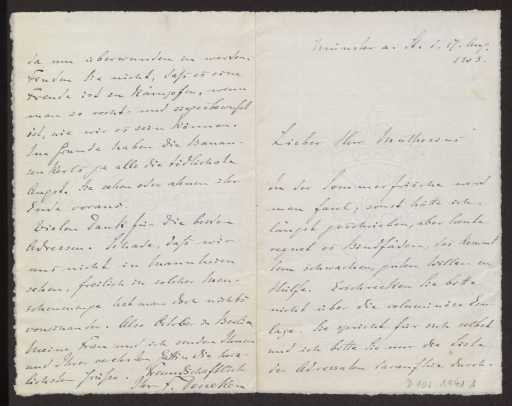 Münster a. St. d. 17. Aug.
1903.
Lieber Herr Muthesius
In der Sommerfrische wird
man faul, sonst hätte ich
längst geschrieben, aber heute
regnet es Bindfäden, das kommt
dem schwachen, guten Willen zu
Hülfe. Erschrecken Sie bitte
nicht über die voluminöse Bei-
lage. Sie spricht für sich selbst
und ich bitte Sie nur die Liste
der Adressaten daraufhin durch-
D 102 1941 A
da nun überwunden zu werden.
Finden Sie nicht, daß es eine
Freude ist zu kämpfen, wenn
man so recht- und siegesbewußt
ist, wie wir es sein können.
Im Grunde haben die Banau-
sen Kerls ja alle die tödlichste
Angst. Sie sehen oder ahnen ihr
Ende voraus.
Vielen Dank für die beiden
Adressen. Schade, daß wir
uns nicht in Mannheim
sehen, freilich in solcher Men-
schenmenge hat man doch nichts
voneinander. Also Oktober in Berlin
Meine Frau und ich senden Ihnen
und Ihrer verehrten Gattin die herz-
lichsten Grüße. Freundschaftlich
Ihr F. Deneken